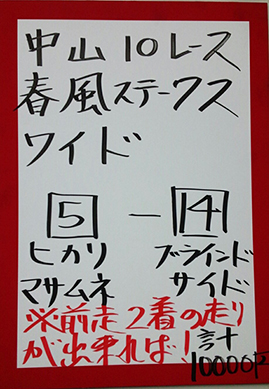 中山10レース
春風ステークス
ワイド
5 － 14
ヒカリ ブラインド
マサムネ サイド
※前走2着の走り
が出来れば！計
10000円